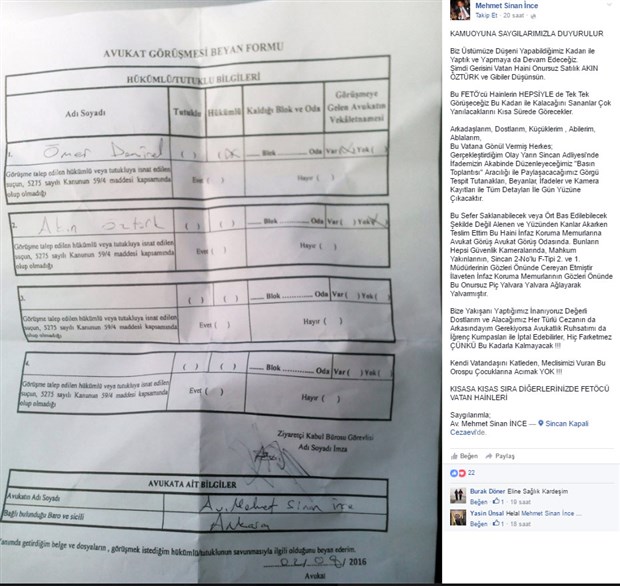 AVUKAT GÖRÜŞMESİ BEYAN FORMU
HÜKÜMLÜ/TUTUKLU BİLGİLERİ
Adı Soyadı
Tutuklu
Hükümlü
Kaldığı Blok ve Oda
Görüşmeye Gelen Avukatın Vekâletnamesi
1.
Ömer
( ) (X) ..... Blok ............. Oda Var (X) Yok ( )
Görüşme talep edilen hükümlü veya tutukluya isnat edilen
suçun, 5275 sayılı Kanunun 59/4 maddesi kapsamında
olup olmadığı
Evet ( )
Hayır ( )
2.
Akın Öztürk
( ) ( ) ..... Blok ............. Oda Var ( ) Yok (X)
Görüşme talep edilen hükümlü veya tutukluya isnat edilen
suçun, 5275 sayılı Kanunun 59/4 maddesi kapsamında
olup olmadığı
Evet ( )
Hayır ( )
3.
( ) ( ) ..... Blok ............. Oda Var ( ) Yok ( )
Görüşme talep edilen hükümlü veya tutukluya isnat edilen
suçun, 5275 sayılı Kanunun 59/4 maddesi kapsamında
olup olmadığı
Evet ( )
Hayır ( )
4.
( ) ( ) ..... Blok ............. Oda Var ( ) Yok ( )
Görüşme talep edilen hükümlü veya tutukluya isnat edilen
suçun, 5275 sayılı Kanunun 59/4 maddesi kapsamında
olup olmadığı
Evet ( )
Hayır ( )
Ziyaretçi Kabul Bürosu Görevlisi
Adı Soyadı İmza
AVUKATA AİT BİLGİLER
Avukatın Adı Soyadı
Av. Mehmet Sinan İnce
Bağlı bulunduğu Baro ve sicili
Ankara
Yanımda getirdiğim belge ve dosyaların , görüşmek istediğim hükümlü/tutuklunun savunmasıyla ilgili olduğunu beyan ederim.
02/08/2016
Avukat
Mehmet Sinan İnce
Takip Et · 20 saat ·
KAMUOYUNA SAYGILARIMIZLA DUYURULUR
Biz Üstümüze Düşeni Yapabildiğimiz Kadarı ile
Yaptık ve Yapmaya da Devam Edeceğiz.
Şimdi Gerisini Vatan Haini Onursuz Satılık AKIN
ÖZTÜRK ve Gibiler Düşünsün.
Bu FETÖ'cü Hainlerin HEPSİYLE de Tek Tek
Görüşeceğiz Bu Kadarı ile Kalacağını Sananlar Çok
Yanılacaklarını Kısa Sürede Görecekler.
Arkadaşlarım, Dostlarım, Küçüklerim , Abilerim,
Ablalarım,
Bu Vatana Gönül Vermiş Herkes;
Gerçekleştirdiğim Olay Yarın Sincan Adliyesi'nde
İfademizin Akabinde Düzenleyeceğimiz "Basın
Toplantısı" Aracılığı ile Paylaşacağımız Görgü
Tespit Tutanakları, Beyanlar, İfadeler ve Kamera
Kayıtları ile Tüm Detayları İle Gün Yüzüne
Çıkacaktır.
Bu Sefer Saklanabilecek veya Ört Bas Edilebilecek
Şekilde Değil Alenen ve Yüzünden Kanlar Akarken
Teslim Ettim Bu Haini İnfaz Koruma Memurlarına
Avukat Görüş Avukat Görüş Odasında. Bunların
Hepsi Güvenlik Kameralarında, Mahkum
Yakınlarının, Sincan 2-No'lu F-Tipi 2. ve 1.
Müdürlerinin Gözleri Önünde Cereyan Etmiştir
İlaveten İnfaz Koruma Memurlarının Gözleri Önünde
Bu Onursuz Piç Yalvara Yalvara Ağlayarak
Yalvarmıştır.
Bize Yakışanı Yaptığımız İnanıyoruz Değerli
Dostlarım ve Alacağımız Her Türlü Cezanın da
Arkasındayım Gerekiyorsa Avukatlık Ruhsatımı da
İğrenç Kumpasları ile İptal Edebilirler, Hiç Farketmez
ÇÜNKÜ Bu Kadarla Kalmayacak !!!
Kendi Vatandaşını Katleden, Meclisimizi Vuran Bu
Orospu Çocuklarına Acımak YOK !!!
KISASA KISAS SIRA DİĞERLERİNİZDE FETÖCÜ
VATAN HAİNLERİ
Saygılarımla;
Av. Mehmet Sinan İNCE — Sincan Kapali
Cezaevi'de.
Beğen Paylaş
22
Burak Döner Eline Sağlık Kardeşim
Beğen · 1 · 18 saat
Yasin Ünsal Helal Mehmet Sinan İnce ...
Beğen · 1 · 18 saat